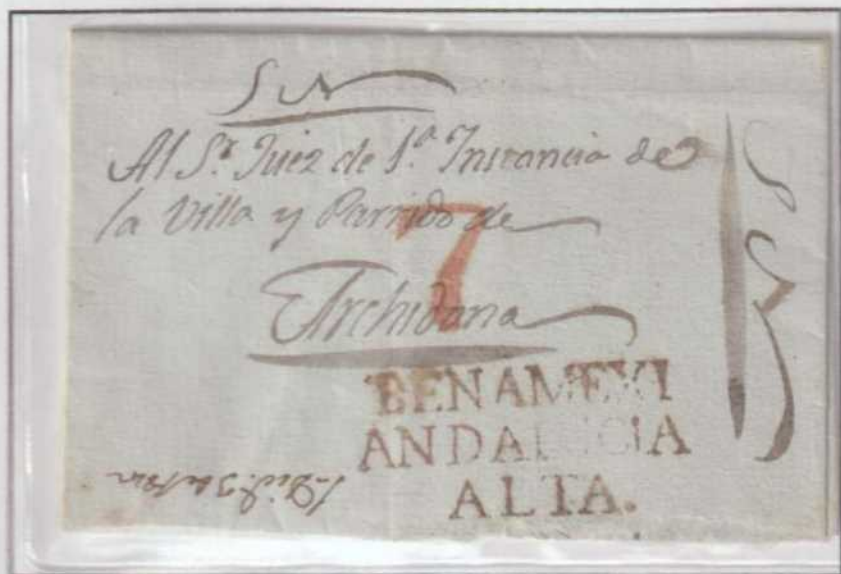 S N
Al S.r Juez de 1.a Instancia de
la Villa y Partido de
7
Archidona
BENAMEXI
ANDALUCIA
ALTA.